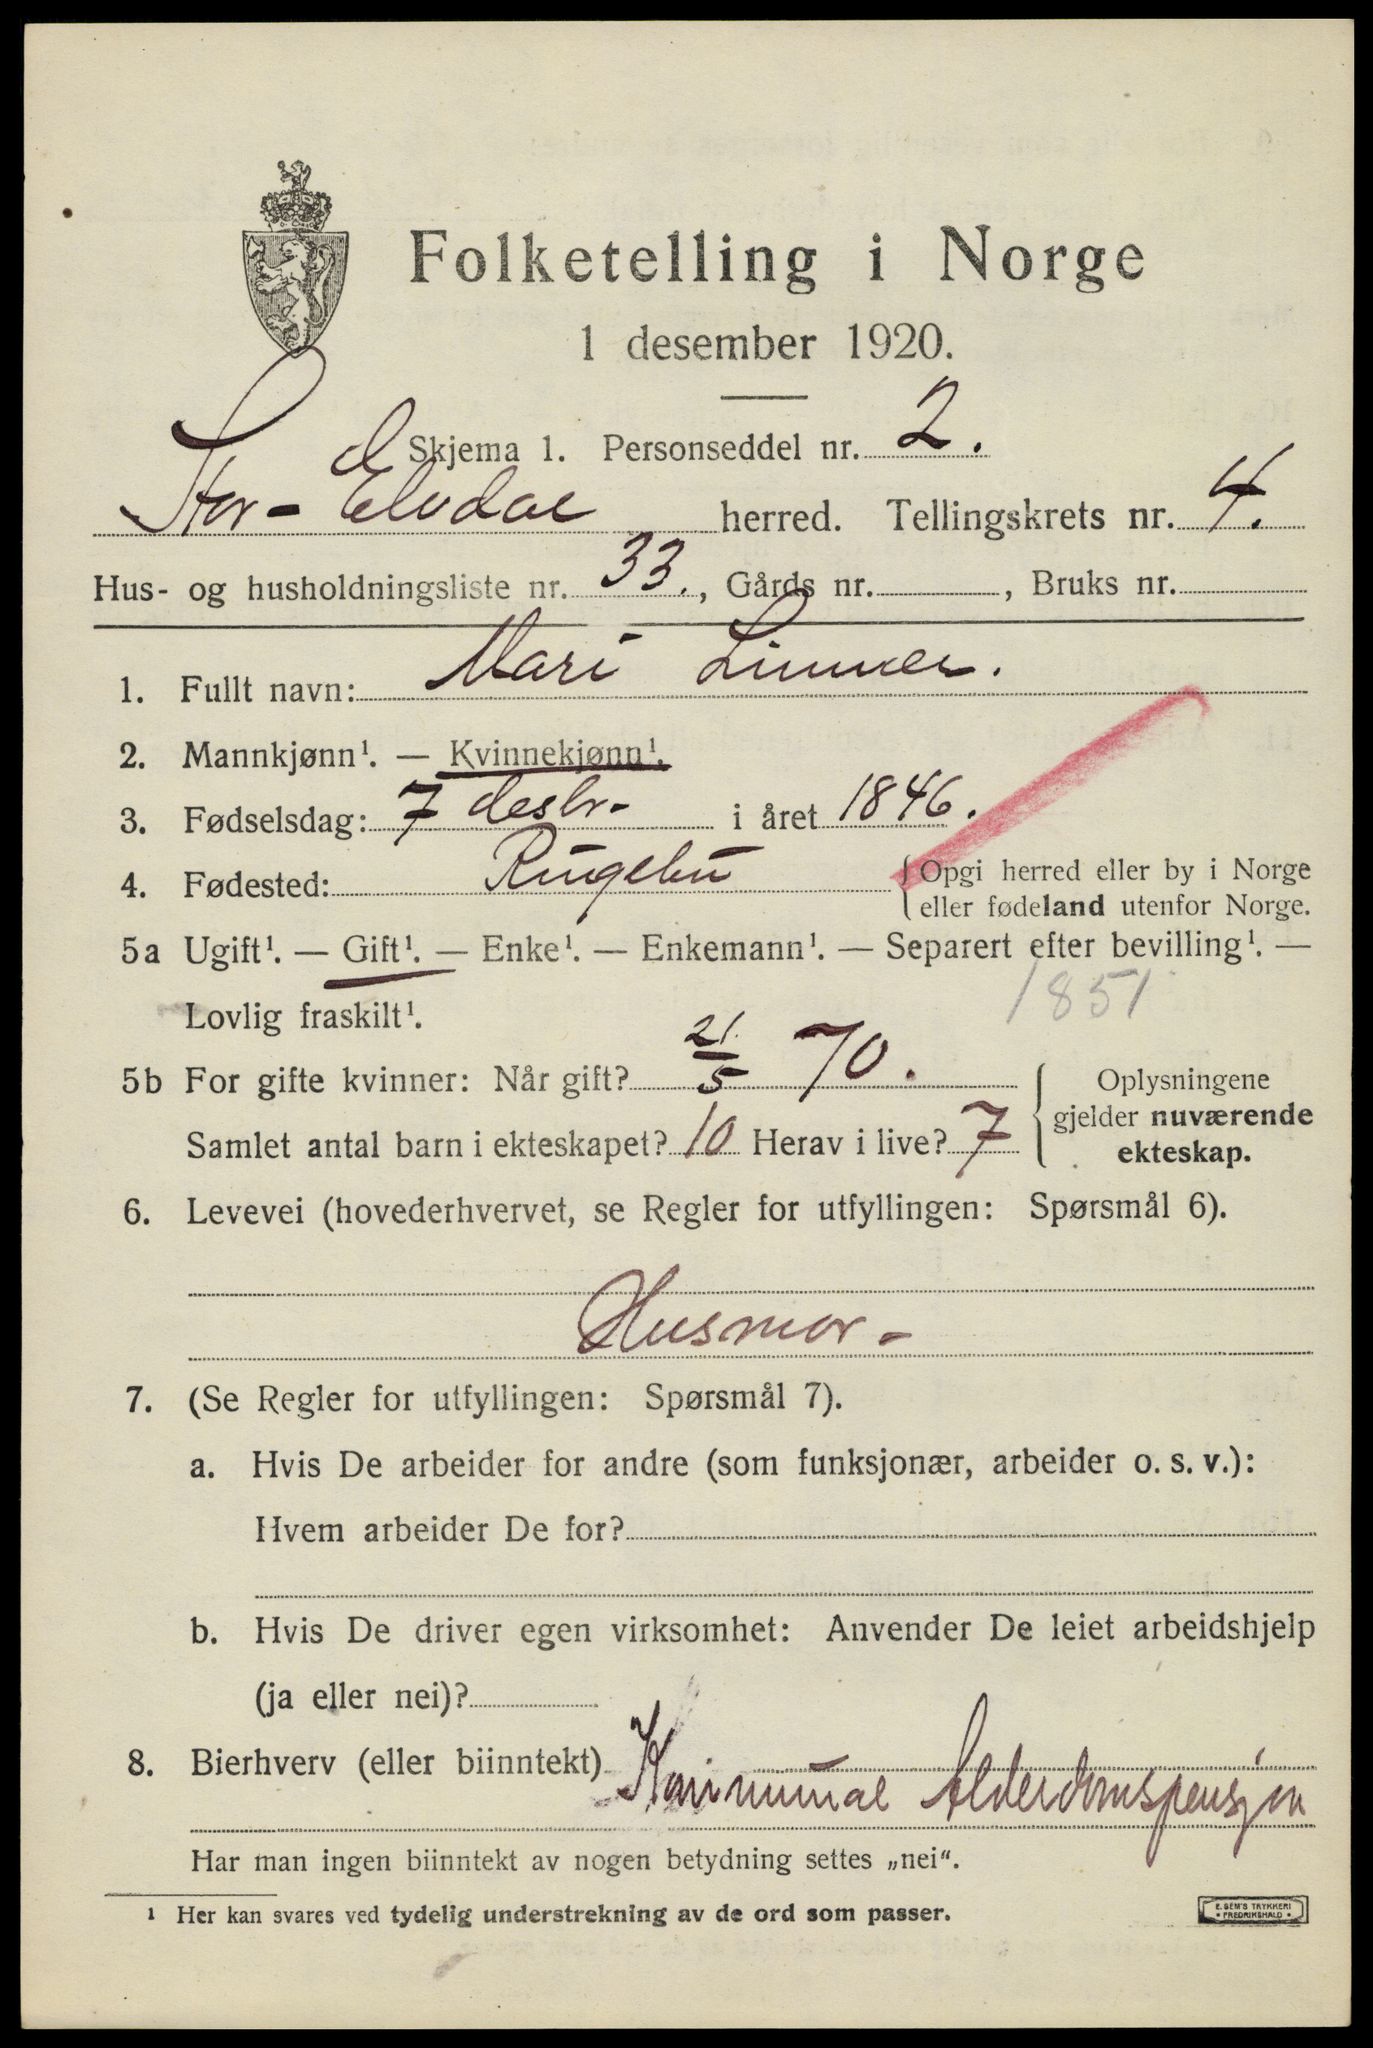 Folketelling i Norge
1 desember 1920.
Skjema 1. Personseddel nr. 2.
Stor-Elvdal herred. Tellingskrets nr. 4.
Hus- og husholdningsliste nr. 33., Gårds nr. , Bruks nr.
1. Fullt navn: Mari
2. Mannkjønn¹. — Kvinnekjønn¹.
3. Fødselsdag: 7 desbr- i året 1846.
4. Fødested: Ringebu { Opgi herred eller by i Norge
eller fødeland utenfor Norge.
5a Ugift¹. — Gift¹. — Enke¹. — Enkemann¹. — Separert efter bevilling¹. —
Lovlig fraskilt¹. 1851
5b For gifte kvinner: Når gift? 21/5 70. Oplysningene
gjelder nuværende
Samlet antal barn i ekteskapet? 10 Herav i live? 7 ekteskap.
6. Levevei (hovederhvervet, se Regler for utfyllingen: Spørsmål 6).
Husmor-
7. (Se Regler for utfyllingen: Spørsmål 7).
a. Hvis De arbeider for andre (som funksjonær, arbeider o. s. v.):
Hvem arbeider De for?
b. Hvis De driver egen virksomhet: Anvender De leiet arbeidshjelp
(ja eller nei)?
8. Bierhverv (eller biinntekt) Kommunal Alderdomspensjon
Har man ingen biinntekt av nogen betydning settes „nei“.
¹ Her kan svares ved tydelig understrekning av de ord som passer.
E. SEM'S TRYKKERI
• FREDRIKSHALD •